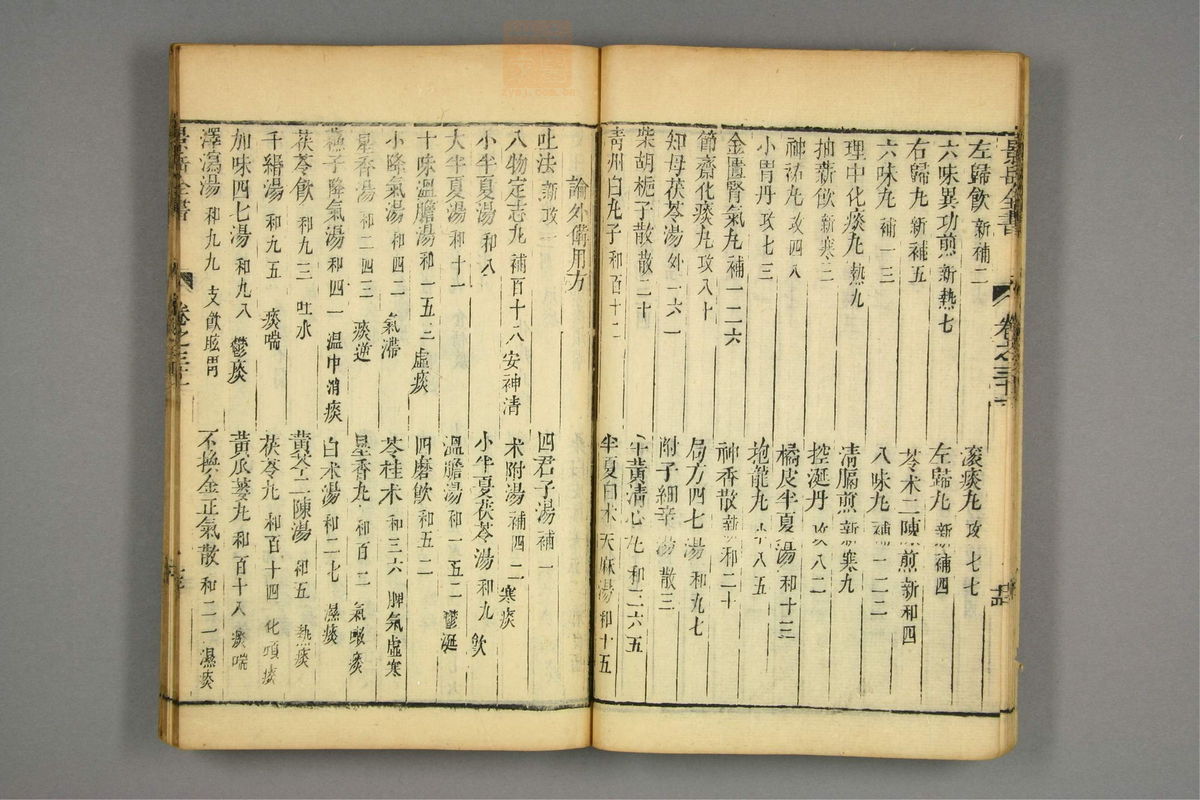 左歸飲 新補二 滾痰丸 攻七七
六味異功煎 新熱七 左歸丸 新補四
右歸丸 新補五 苓术二陳煎 新和四
六味丸 補一三 八味丸 補一二二
理中化痰丸 熱九 清膈煎 新寒九
抽薪飲 新寒三 控涎丹 攻八二
神祐丸 攻四八 橘皮半夏湯 和十三
小胃丹 攻七三 地龍丸 八五
金匱腎氣丸 補一二六 神香散 新和二十
節齋化痰丸 攻八十 局方四七湯 和九七
知母茯苓湯 外一六一 附子細辛湯 散三
柴胡梔子散 散二十 牛黃清心丸 和三六五
青州白丸子 和百十二 半夏白术天麻湯 和十五
論外備用方
吐法 新攻一 四君子湯 補一
八物定志丸 補百十八 安神清 术附湯 補四二 寒痰
小半夏湯 和八 小半夏茯苓湯 和九 飲
大半夏湯 和十一 溫膽湯 和一五二 鬱涎
十味溫膽湯 和一五三 虛痰 四磨飲 和五二
小降氣湯 和四二 氣滯 苓桂术 和三六 脾氣虛寒
星香湯 和二四三 痰逆 星香丸 和百二 氣嗽痰
蘇子降氣湯 和四一 溫中消痰 白术湯 和二七 濕痰
茯苓飲 和九三 吐水 黃芩二陳湯 和五 熱痰
千緡湯 和九五 痰喘 茯苓丸 和百十四 化頑痰
加味四七湯 和九八 鬱痰 黃瓜蔞丸 和百十八 痰喘
澤瀉湯 和九九 支飲眩冒 不換金正氣散 和二一 濕痰
景岳全書 卷之三十一